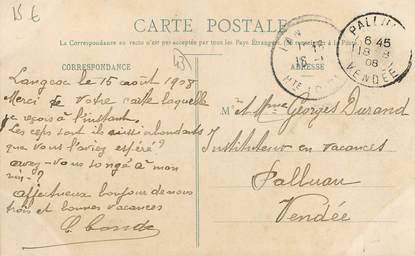 15 €
CARTE POSTALE
La Correspondance au recto n'est pas acceptée par tous les Pays Étrangers. (Se renseigner à la Poste).
CORRESPONDANCE
ADRESSE
PALLUAU
6 45
18 8
08
VENDÉE
Langeac le 15 août 1908
Merci de votre carte laquelle
je reçois à l'instant.
Les ceps sont ils aussi abondants
que vous l'aviez espéré ?
avez-vous songé à mon
vin ?
Affectueux bonjour de nous
trois et bonnes vacances
Mr et Mme Georges Durand
Instituteur en vacances
Palluau
Vendée